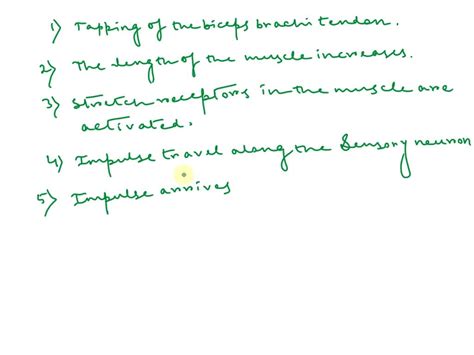 1) Tapping of the biceps brachi tendon.
2) The length of the muscle increases.
3) Stretch receptors in the muscle are
activated.
4) Impulse travel along the sensory neuron
5) Impulse arrives